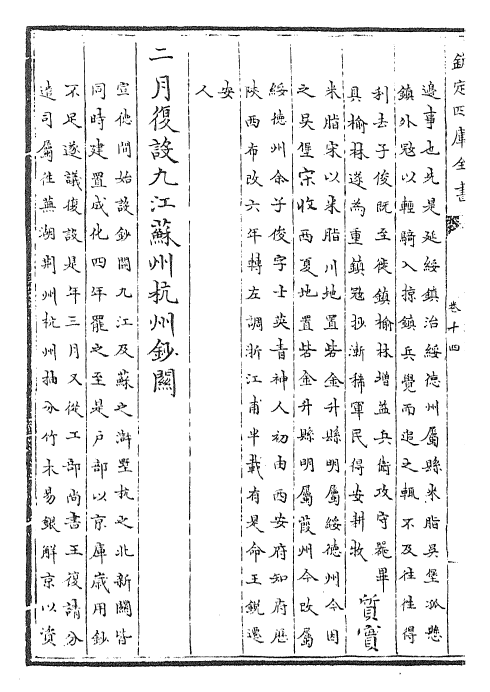 欽定四庫全書
卷十四
邊事也先是延綏鎮治綏德州屬縣米脂吳堡孤懸
鎮外冦以輕騎入掠鎮兵覺而追之輒不及往往得
利去子俊既至徙鎮榆林增益兵衛攻守器畢
具榆林遂為重鎮冦抄漸稀軍民得安耕牧 質實
米脂宋以米脂川地置砦金升縣明屬綏德州今因
之吳堡宋收西夏地置砦金升縣明屬葭州今改屬
綏德州余子俊字士英青神人初由西安府知府歴
陜西布政六年轉左調浙江甫半載有是命王銳遷
安
人
二月復設九江蘇州杭州鈔關
宣德間始設鈔關九江及蘇之滸墅杭之北新關皆
同時建置成化四年罷之至是户部以京庫歳用鈔
不足遂議復設是年三月又從工部尚書王復請分
遣司屬往蕪湖荆州杭州抽分竹木易銀解京以資